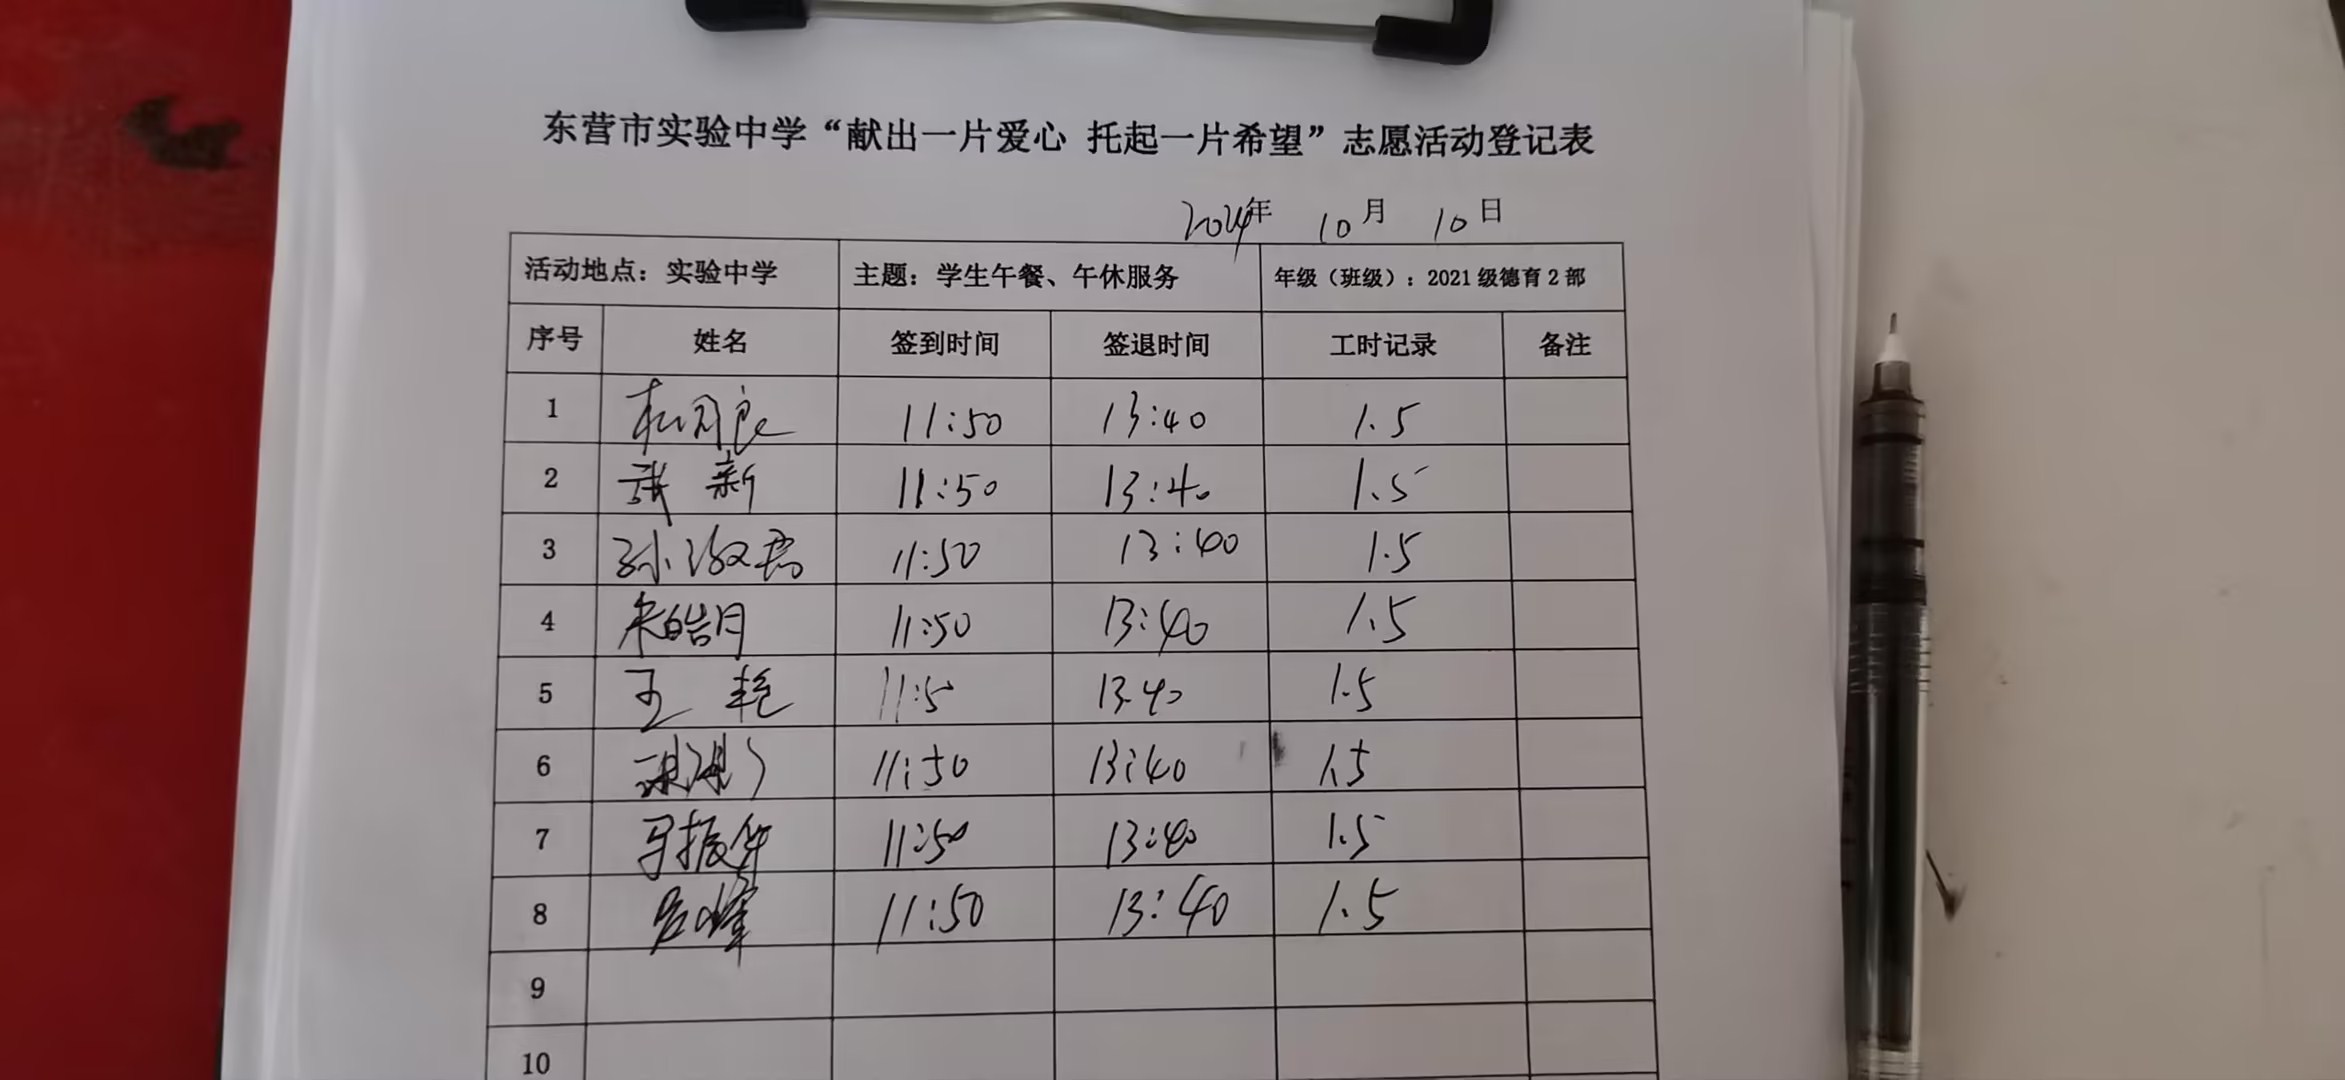 东营市实验中学“献出一片爱心 托起一片希望”志愿活动登记表
2024年 10月 10日
活动地点：实验中学 主题：学生午餐、午休服务 年级（班级）：2021级德育2部
序号 姓名 签到时间 签退时间 工时记录 备注
1 11:50 13:40 1.5
2 张新 11:50 13:40 1.5
3 孙 11:50 13:40 1.5
4 朱皓月 11:50 13:40 1.5
5 王艳 11:5 13:40 1.5
6 11:50 13:40 1.5
7 马振华 11:50 13:40 1.5
8 11:50 13:40 1.5
9
10